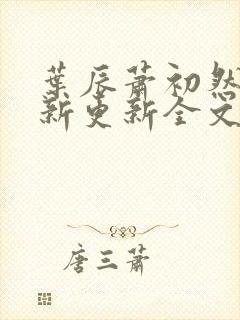 葉辰蕭初然
新更新全文
唐三蕭